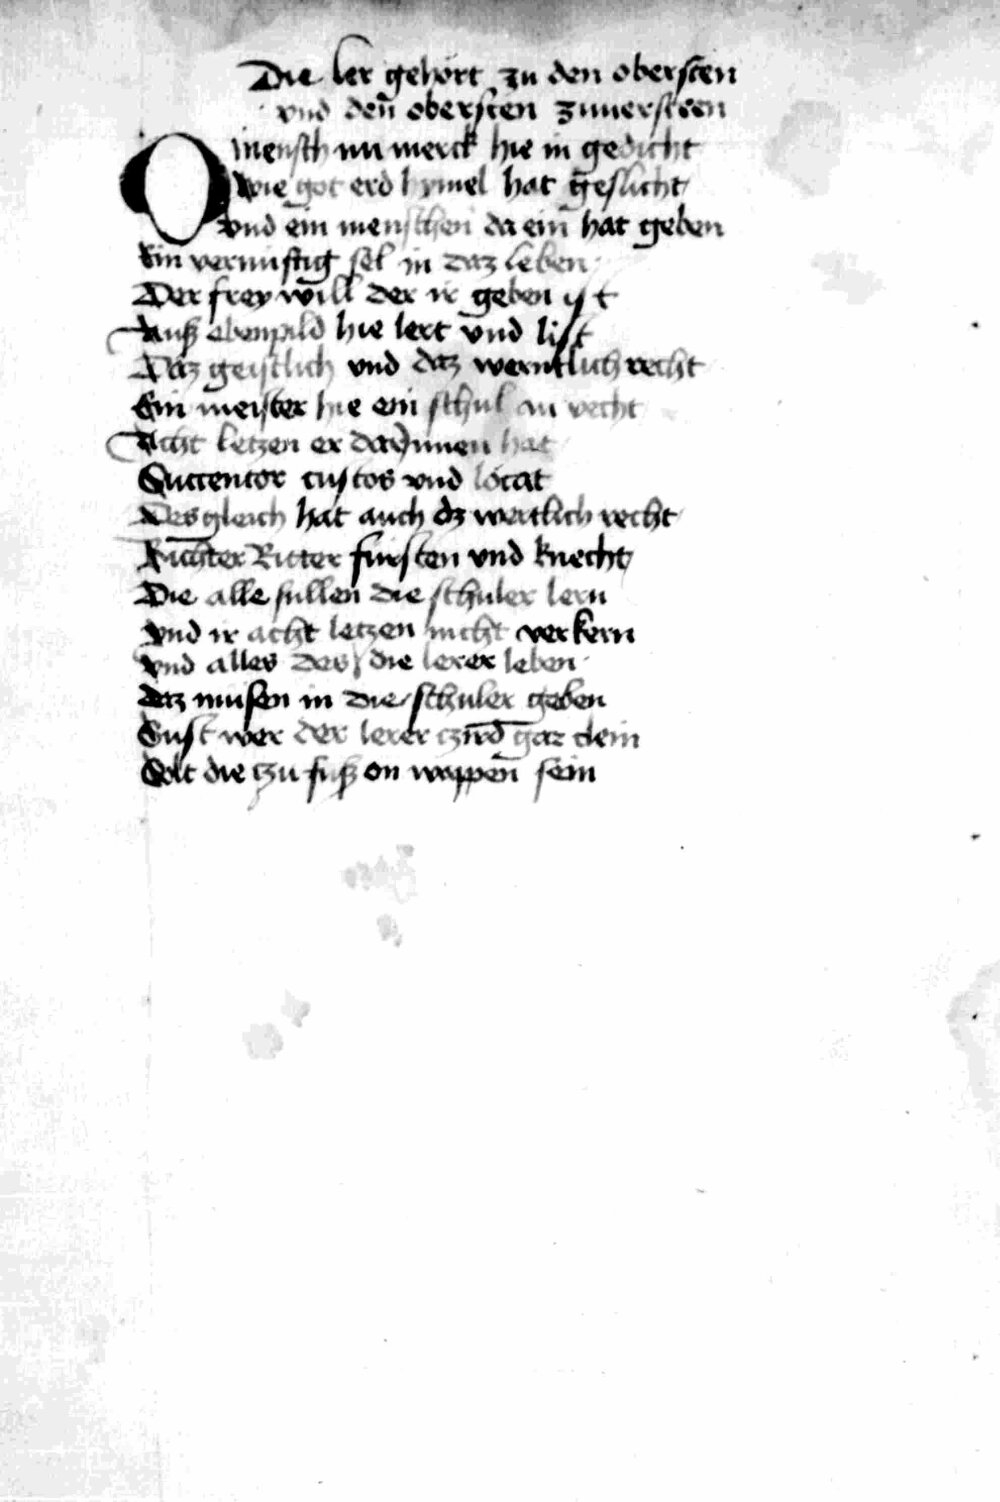 Die ler gehört zu den obersten
vnd den̄ obersten zuuersteen
O mensch nu merck hie in gedicht
Wie got erd hymel hat geslicht
Vnd ein menschen da ein hat geben
Ein vernu̅fftig sel in daz leben
Der frey will der ir geben yst
Auß ebenpild hie lert vnd list
Daz geistlich vnd daz werntlich recht
Ein meister hie ein schul an vecht
Acht letzen er darynnen hat
Succentor custos vnd locat
Des gleich hat auch dz werltlich recht
Richter Ritter fürsten vnd knecht
Die alle sullen die schuler lern
Vnd ir acht letzen nicht verkern
Vnd alles des die lerer leben
daz müsen in die schuler geben
Sust wer der lerer czird gar clein
Solt die czu fuß on wappen̄ sein